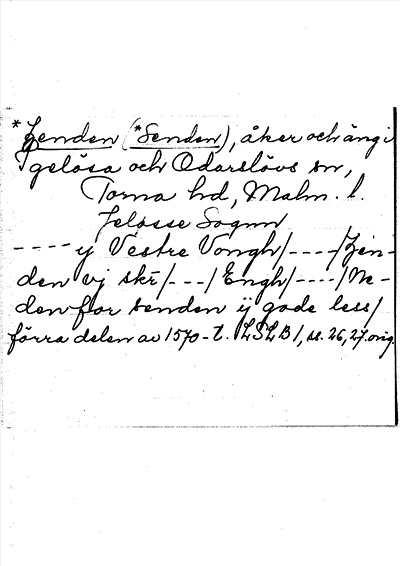 *Zenden (*Senden), åker och äng i
Igelösa och Odarslövs sn,
Torna hd, Malm. l.
Jelösse Sognn
---- ij Vestre Vongh/----/Zen-
den vj skr/---/Engh/----/Ne-
den for senden ij gode less/
förra delen av 1570-t. LSLB 1, ss. 26, 27. orig.